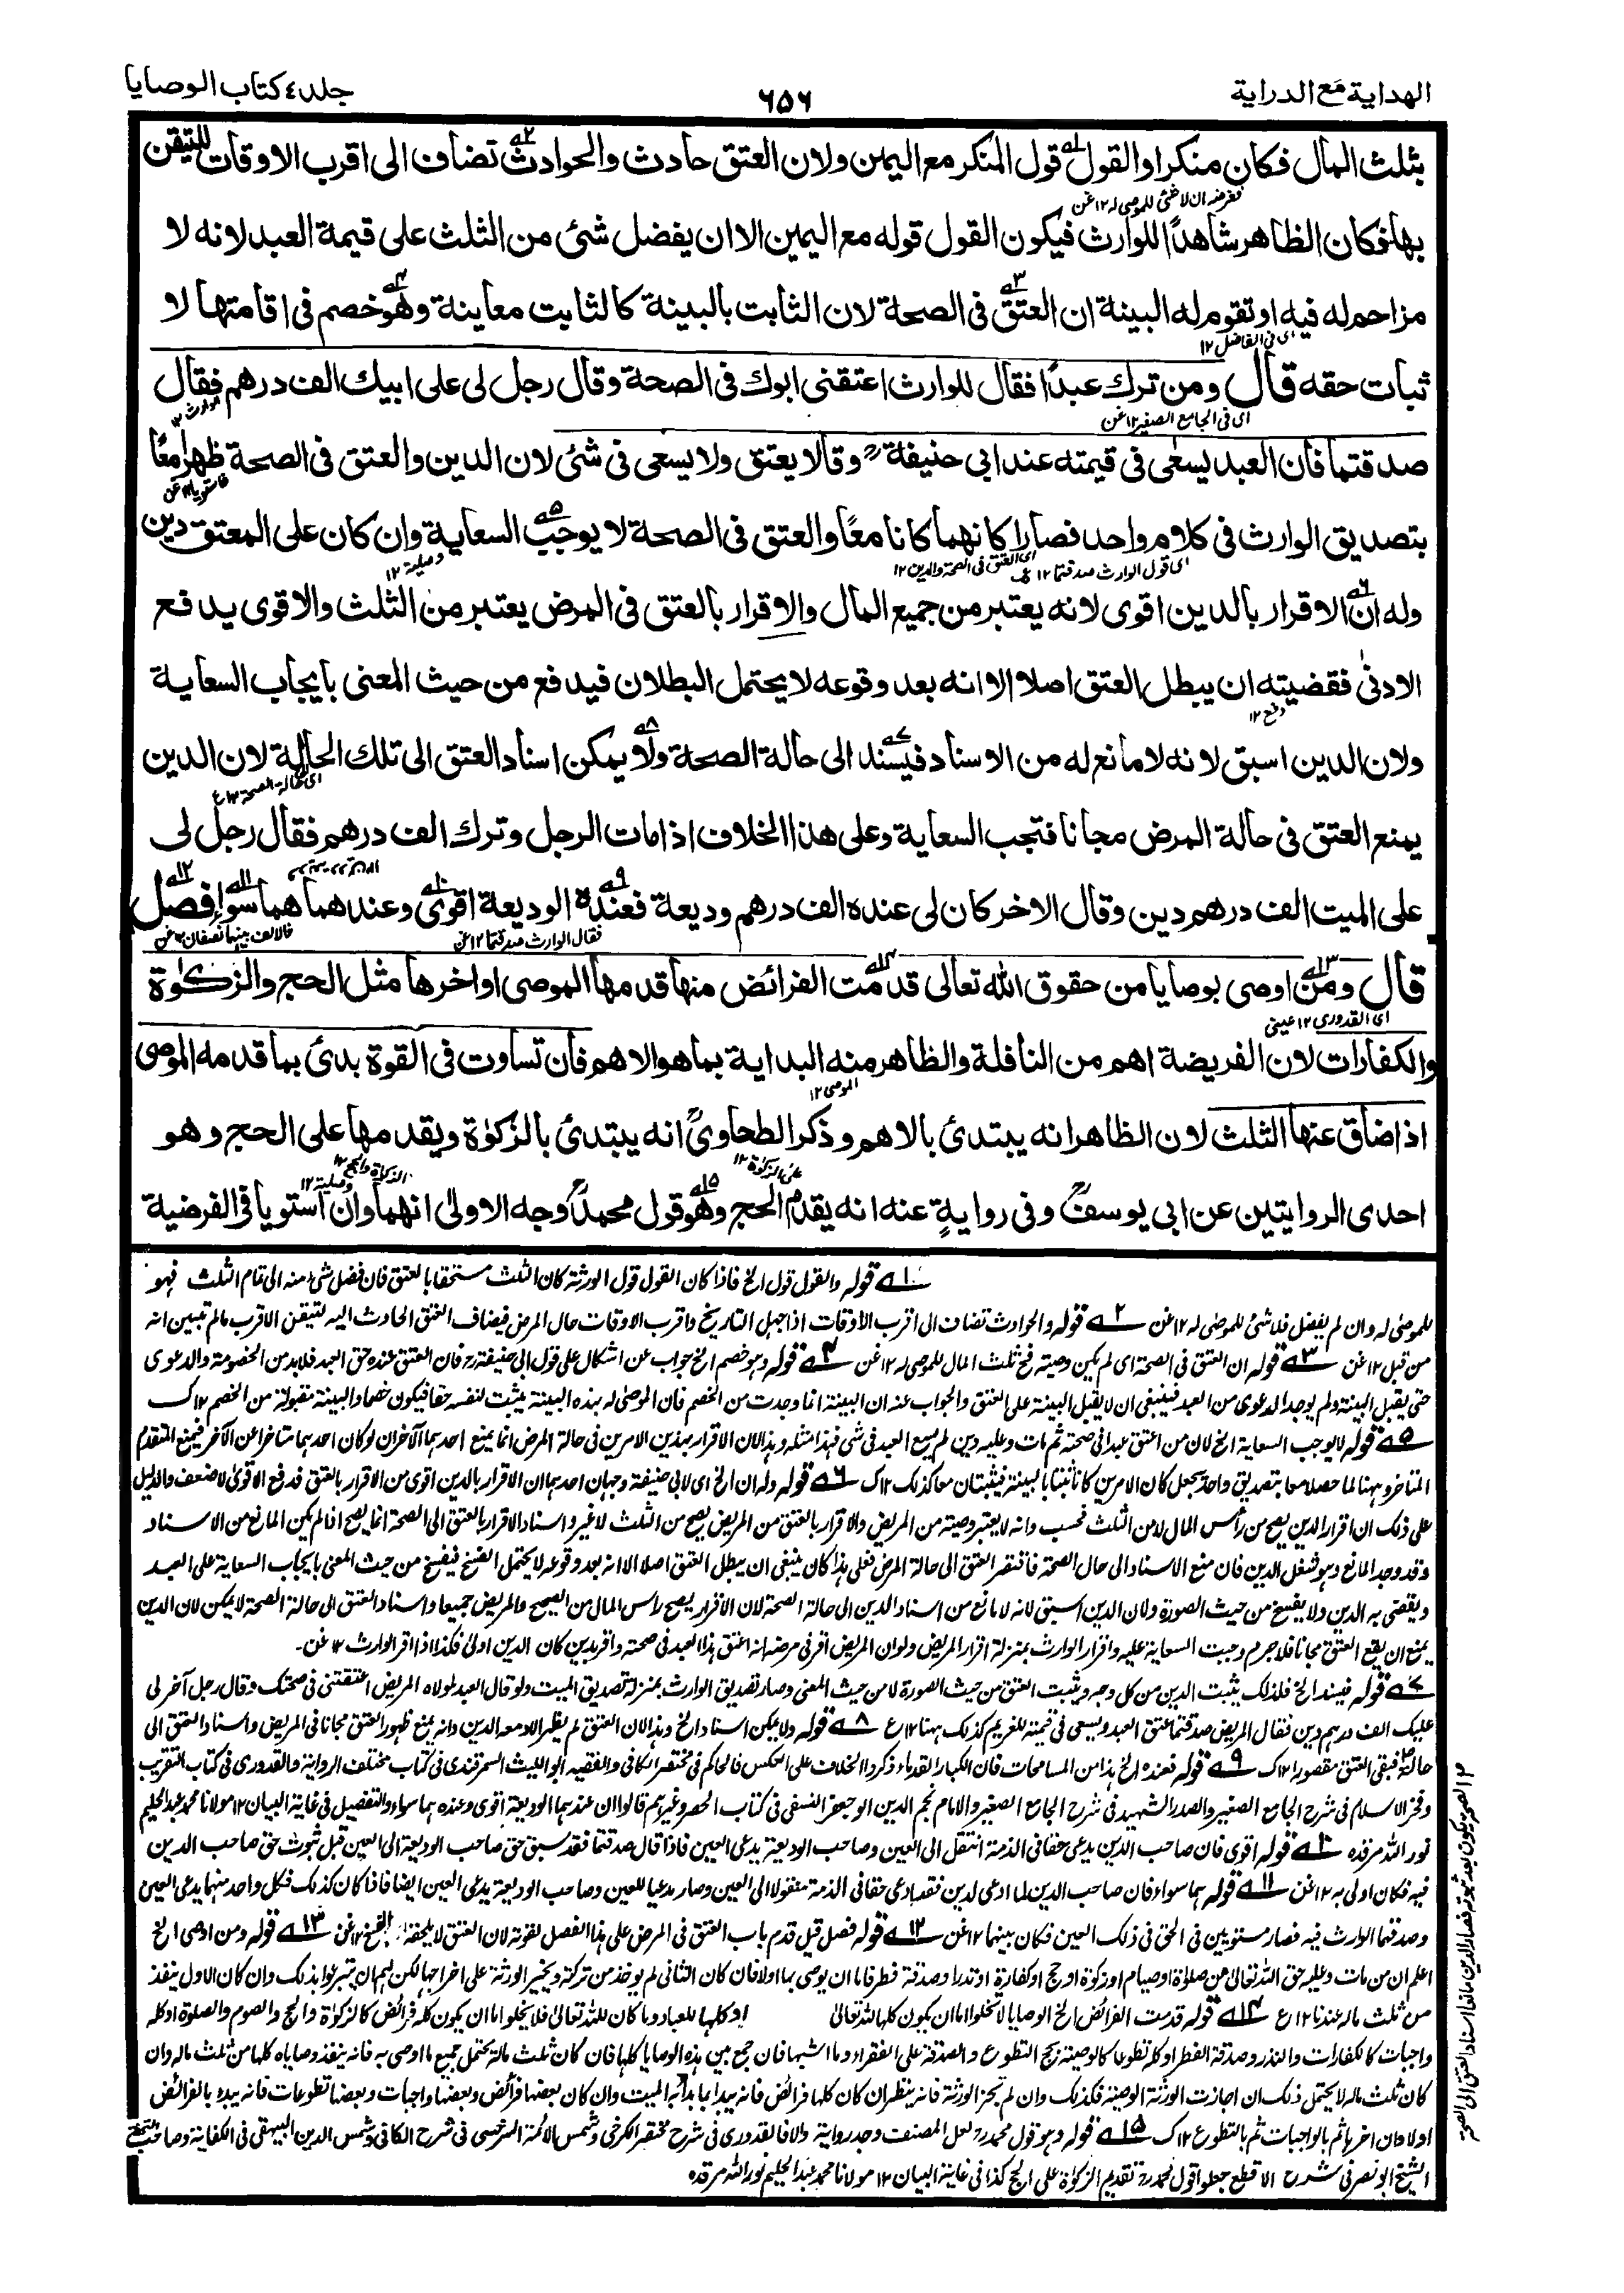 الهداية مع الدراية
٦٥٦
جلد ٤ كتاب الوصايا
بثلث المال فكان منكرا والقول قول المنكر مع اليمين ولان العتق حادث والحوادث تضاف الى اقرب الاوقات للتيقن
بها فكان الظاهر شاهداً للوارث فيكون القول قوله مع اليمين الا ان يفضل شئ من الثلث على قيمة العبد لانه لا
مزاحم له فيه او تقوم له البينة ان العتق فى الصحة لان الثابت بالبينة كالثابت معاينة وهو خصم فى اقامتها لا
اى فى الفاضل ١٢
ثبات حقه قال ومن ترك عبدًا فقال للوارث اعتقنى ابوك فى الصحة وقال رجل لى على ابيك الف درهم فقال
اى فى الجامع الصغير ١٢ عن
صدقتما فان العبد يسعٰى فى قيمته عند ابى حنيفة وقالا يعتق ولا يسعى فى شئ لان الدين والعتق فى الصحة ظهرا معًا
بتصديق الوارث فى كلام واحد فصارا كانهما كانا معًا والعتق فى الصحة لا يوجب السعاية وان كان على المعتق دين
اى قول الوارث صدقتما ١٢
اى العتق فى الصحة والدين ١٢
وصلية ١٢
وله ان الاقرار بالدين اقوى لانه يعتبر من جميع المال والاقرار بالعتق فى المرض يعتبر من الثلث والاقوى يدفع
الادنىٰ فقضيته ان يبطل العتق اصلا الا انه بعد وقوعه لا يحتمل البطلان فيدفع من حيث المعنى بايجاب السعاية
ولان الدين اسبق لانه لا مانع له من الاسناد فيسند الى حالة الصحة ولا يمكن اسناد العتق الى تلك الحالة لان الدين
يمنع العتق فى حالة المرض مجانا فتجب السعاية وعلى هذا الخلاف اذا مات الرجل وترك الف درهم فقال رجل لى
على الميت الف درهم دين وقال الاخر كان لى عنده الف درهم وديعة فعنده الوديعة اقوى وعندهما هما سواء فصل
فقال الوارث صدقتما ١٢ عن
فالالف بينهما نصفان ١٢ عن
قال ومن اوصى بوصايا من حقوق الله تعالى قدمت الفرائض منها قدمها الموصى او اخرها مثل الحج والزكوٰة
اى القدورى ١٢ عينى
والكفارات لان الفريضة اهم من النافلة والظاهر منه البداية بما هو الاهم فان تساوت فى القوة بدئ بما قدمه الموصى
الموصى ١٢
اذا ضاق عنها الثلث لان الظاهر انه يبتدئ بالاهم وذكر الطحاوى انه يبتدئ بالزكوٰة ويقدمها على الحج وهو
على الزكوة ١٢
الزكاة والحج ١٢
وصلية ١٢
احدى الروايتين عن ابى يوسف وفى رواية عنه انه يقدم الحج وهو قول محمد وجه الاولىٰ انهما وان استويا فى الفرضية
١ قوله والقول قول الخ فاذا كان القول قول الورثة كان الثلث مستحقا بالعتق فان فضل شئ منه الى تمام الثلث فهو
للموصى له وان لم يفضل فلا شئ للموصى له ١٢ عن ٢ قوله والحوادث تضاف الى اقرب الاوقات اذا جهل التاريخ واقرب الاوقات حال المرض فيضاف العتق الحادث اليه لتيقن الاقرب مالم تبيين انه
من قبل ١٢ عن ٣ قوله ان العتق فى الصحة اى لم يكن وصيته فح ثلث المال للموصى له ١٢ عن ٤ قوله وهو خصم الخ جواب عن اشكال على قول ابى حنيفة فان العتق عنده حق العبد فلا بد من الخصومة والدعوى
حتى يقبل البينة ولم يوجد الدعوى من العبد فينبغى ان لا يقبل البينة على العتق والجواب عنه ان البينة انما وجدت من الخصم فان الموصى له بهذه البينة يثبت لنفسه حقا فيكون خصما والبينة مقبولة من الخصم ١٢ ك
٥ قوله لا يوجب السعاية الخ لان من اعتق عبدا فى صحته ثم مات وعليه دين لم يسع العبد فى شئ فهذا مثله وهذا لان الاقرار بهذين الامرين فى حالة المرض انما يمنع احدهما الآخر ان لو كان احدهما متاخرا عن الآخر فيمنع المتقدم
المتاخر وههنا لما حصلا معا بتصديق واحد يجعل كان الامرين كانا ثبتا بالبينة فيثبتان معا كذلك ١٢ ك ٦ قوله وله ان الخ اى لابى حنيفة وجهان احدهما ان الاقرار بالدين اقوى من الاقرار بالعتق فدفع الاقوىٰ لاضعف والدليل
على ذلك ان اقرار الدين يصح من رأس المال لا من الثلث فحسب وانه لا يعتبر وصيته من المريض والاقرار بالعتق من المريض يصح من الثلث لا غير واسناد الاقرار بالعتق الى الصحة انما يصح اذا لم يكن المانع من الاسناد
وقد وجد المانع وهو شغل الدين فان منع الاسناد الى حال الصحة فاقتصر العتق الى حالة المرض فعلى هذا كان ينبغى ان يبطل العتق اصلا الا انه بعد وقوعه لا يحتمل الفسخ فيفسخ من حيث المعنى بايجاب السعاية على العبد
ويقضى به الدين ولا يفسخ من حيث الصورة ولان الدين اسبق لانه لا مانع من اسناد الدين الى حالة الصحة لان الاقرار يصح راس المال من الصحيح والمريض جميعا واسناد العتق الى حالة الصحة لا يمكن لان الدين
يمنع ان يقع العتق مجانا فلا جرم وجبت السعاية عليه واقرار الوارث بمنزلة اقرار المريض ولو ان المريض اقر فى مرضه انه اعتق هذا العبد فى صحته واقر بدين كان الدين اولىٰ فكذا اذا اقر الوارث ١٢ عن۔
٧ قوله فيسند الخ فلذلك يثبت الدين من كل وجه ويثبت العتق من حيث الصورة لا من حيث المعنى وصار تصديق الوارث بمنزلة تصديق الميت ولو قال العبد لمولاه المريض اعتقتنى فى صحتك وقال رجل آخر لى
عليك الف درهم دين فقال المريض صدقتما عتق العبد ويسعى فى قيمته للغريم كذلك ههنا ١٢ ع ٨ قوله ولا يمكن اسناد الخ وهذا لان العتق لم يظهر الا معه الدين وانه يمنع ظهور العتق مجانا فى المريض واسناد العتق الى
حالة فبقى العتق مقصورا ١٢ ك ٩ قوله فعنده الخ هذا من المسامحات فان الكبار القدماء ذكروا الخلاف على العكس فالحاكم فى مختصر الكافى والفقيه ابو الليث السمرقندى فى كتاب مختلف الرواية والقدورى فى كتاب التقريب
وفخر الاسلام فى شرح الجامع الصغير والصدر الشهيد فى شرح الجامع الصغير والامام نجم الدين ابو جعفر النسفى فى كتاب الحصر وغيرهم قالوا ان عندهما الوديعة اقوى وعنده هما سواء والتفصيل فى غاية البيان ١٢ مولانا محمد عبد الحليم
نور الله مرقده ١٠ قوله اقوى فان صاحب الدين يدعى حقا فى الذمة انتقل الى العين وصاحب الوديعة يدعى العين فاذا قال صدقتما فقد سبق حق صاحب الوديعة الى العين قبل ثبوت حق صاحب الدين
فيه فكان اولى به ١٢ عن ١١ قوله هما سواء فان صاحب الدين لما ادعى الدين فقد ادعى حقا فى الذمة منقولا الى العين وصار مدعيا للعين وصاحب الوديعة يدعى العين ايضا فاذا كان كذلك فكل واحد منهما يدعى العين
وصدقهما الوارث فيه فصار مستويين فى الحق فى ذلك العين فكان بينهما ١٢ عن ١٢ قوله فصل قيل قدم باب العتق فى المرض على هذا الفصل لقوته لان العتق لا يلحقه الفسخ ١٢ عن ١٣ قوله ومن اوصى الخ
اعلم ان من مات وعليه حق الله تعالىٰ من صلوٰة او صيام او زكوة او حج او كفارة او نذر او صدقة فطر فاما ان يوصى بها اولا فان كان الثانى لم يوخذ من تركته ويخير الورثة على اخراجها لكن لهم ان يتبرعوا بذلك وان كان الاول ينفذ
من ثلث ماله عندنا ١٢ ع ١٤ قوله قدمت الفرائض الخ الوصايا لا تخلو اما ان يكون كلها لله تعالىٰ او كلها للعباد وما كان لله تعالىٰ فلا يخلو اما ان يكون كله فرائض كالزكوٰة والحج والصوم والصلوة او كله
واجبات كالكفارات والنذر وصدقة الفطر او كله تطوعا كالوصية بحج التطوع والصدقة على الفقراء وما اشبهها فان جمع بين هذه الوصايا كلها فان كان ثلث ماله يحتمل جميع ما اوصى به فانه ينفذ وصاياه كلها من ثلث ماله وان
كان ثلث ماله لا يحتمل ذلك ان اجازت الورثة الوصية فكذلك وان لم تجز الورثة فانه ينظر ان كان كلها فرائض فانه يبدأ بما بدأ به الميت وان كان بعضها فرائض وبعضها واجبات وبعضها تطوعات فانه يبدء بالفرائض
اولا وان اخرها ثم بالواجبات ثم بالتطوع ١٢ ك ١٥ قوله وهو قول محمد لعل المصنف وجد رواية والا فالقدورى فى شرح مختصر الكرخى وشمس الائمة السرخسى فى شرح الكافى وشمس الدين البيهقى فى الكفاية وصاحب
الشيخ ابو نصر فى شرح الاقطع جعلوا قول محمد تقديم الزكوٰة على الحج كذا فى غاية البيان ١٢ مولانا محمد عبد الحليم نور الله مرقده